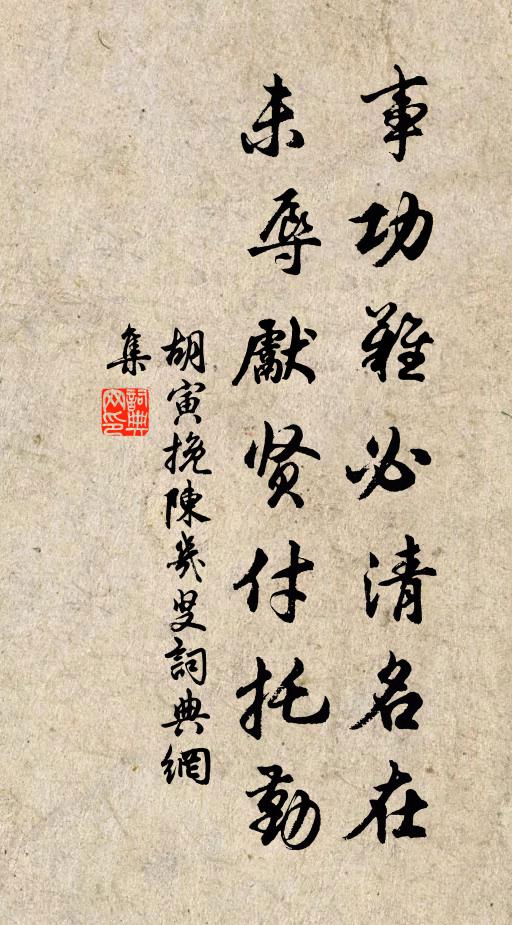 事功難必清名在
未辱獻贤付托勤
胡寅挽陳幾叟詞典網
集
詞典網印